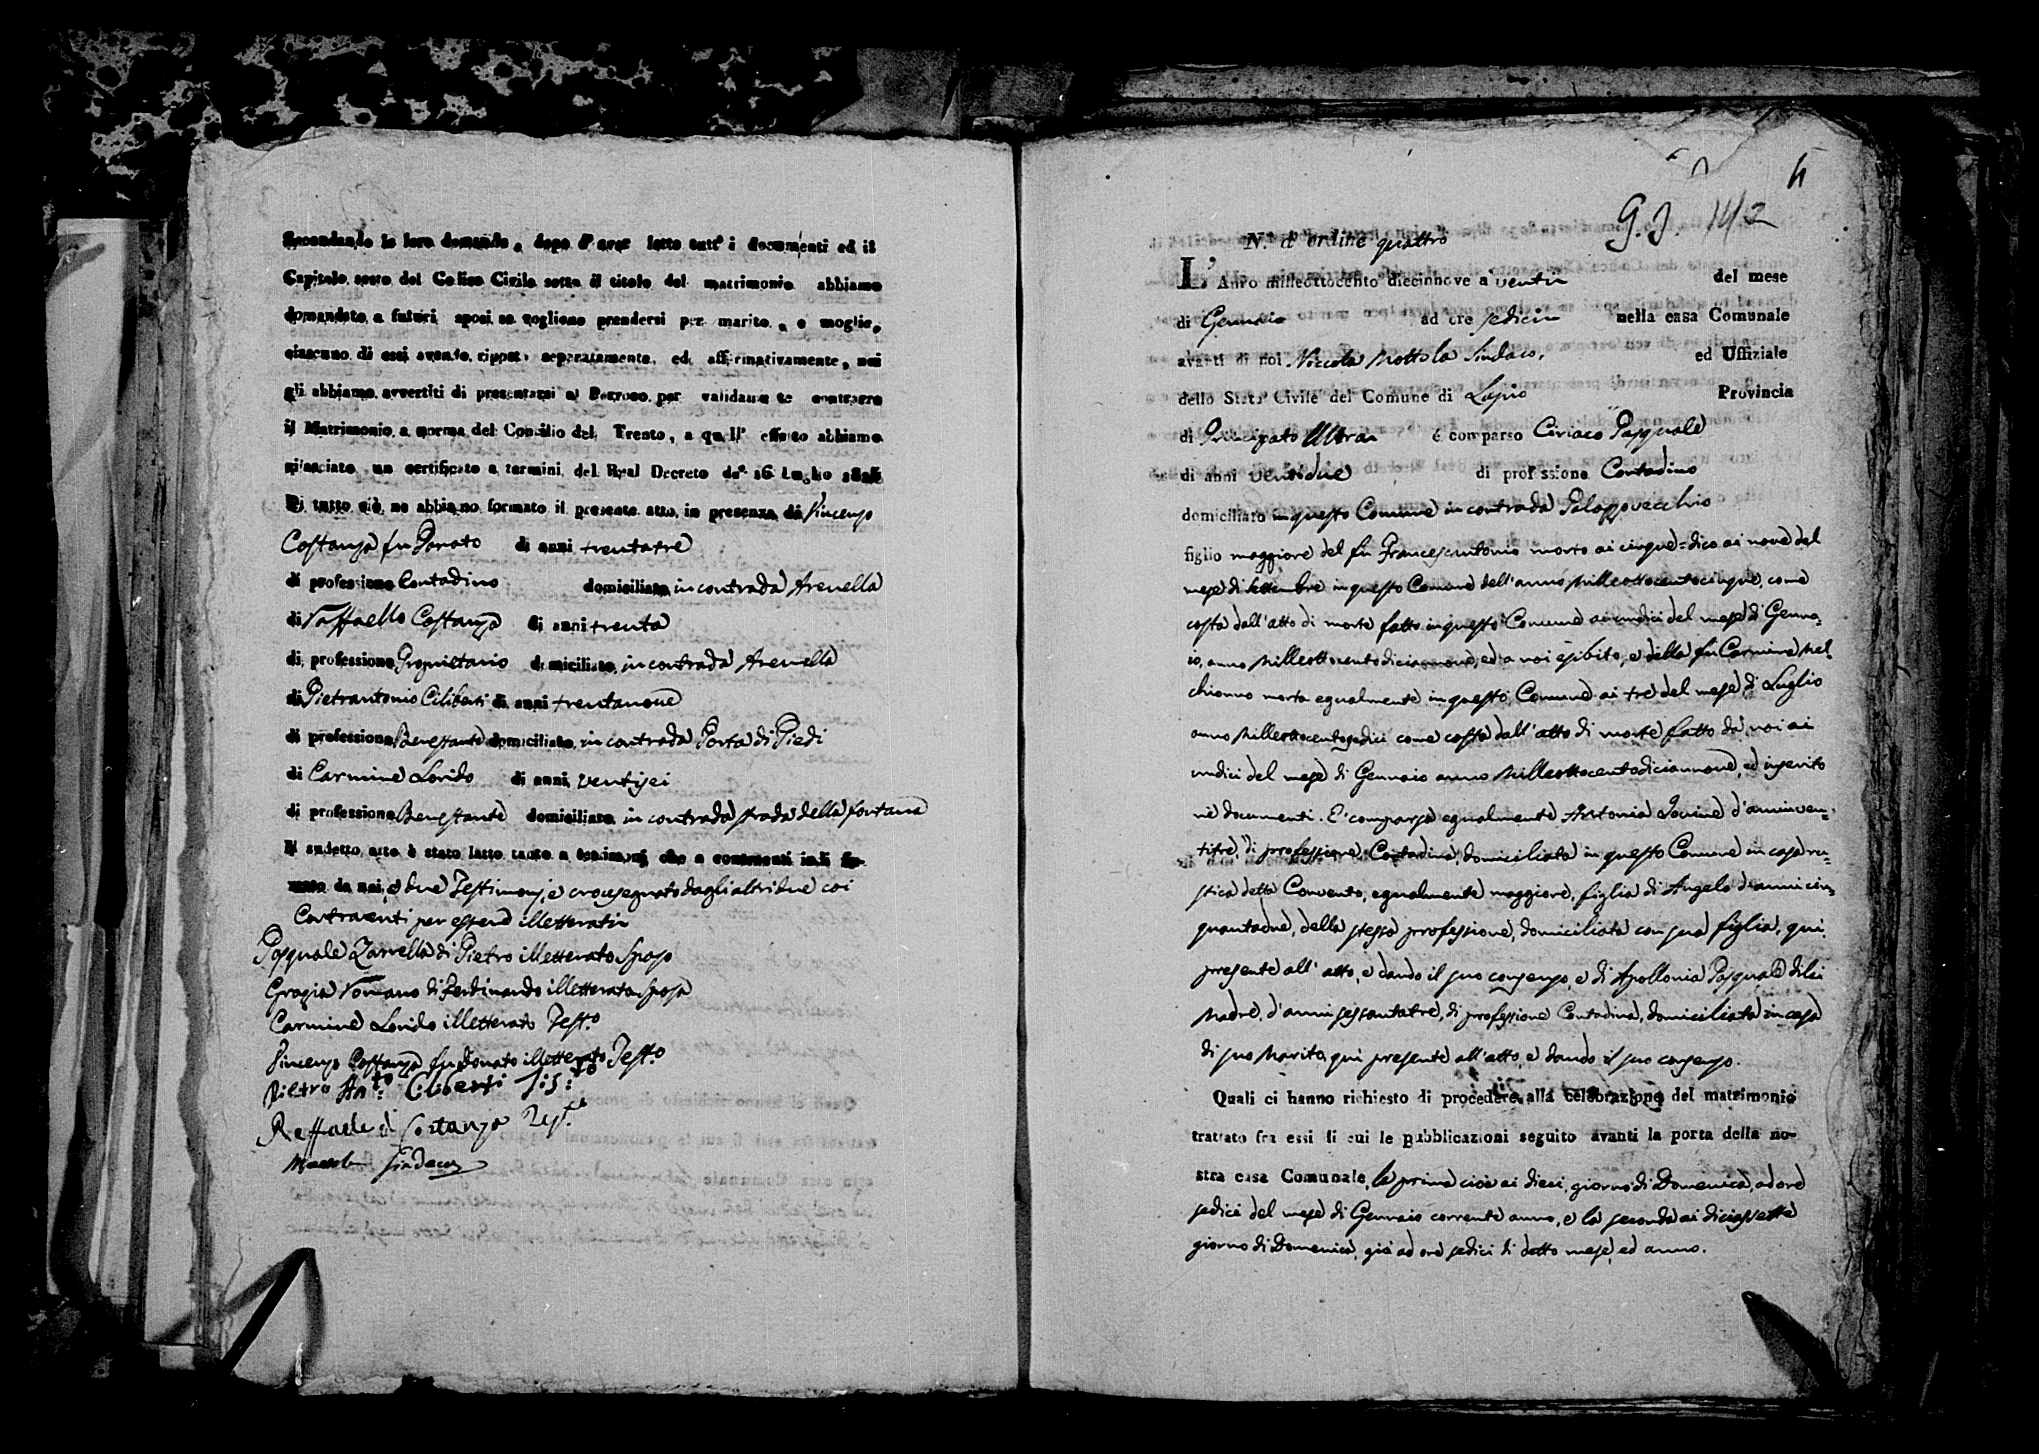 Secondando la loro domanda, dopo d'aver letto tutt'i documenti ed il
Capitolo sesto del Codice Civile sotto il titolo del matrimonio abbiamo
domandato a futuri sposi se vogliono prendersi per marito, e moglie,
ciascuno di essi avendo risposto separatamente, ed affirmativamente, noi
gli abbiamo avvertiti di presentarsi al Parroco per validamente contrarre
il Matrimonio a norma del Concilio del Trento, a quall' effetto abbiamo
rilasciato un certificato a termini del Real Decreto de' 16 Luglio
Di tutto ciò ne abbiamo formato il presente atto, in presenza di Vincenzo
Costanza fu Donato di anni trentatre
di professione Contadino domiciliato in contrada Arenella
di Raffaello Costanza di anni trenta
di professione Proprietario domiciliato in contrada Arenella
di Pietrantonio Ciliberti di anni trentanove
di professione Benestante domiciliato in contrada Porta di Piedi
di Carmine Lorido di anni ventisei
di professione Benestante domiciliato in contrada strada della fontana
Il sudetto atto è stato latto tanto a testimonj che a contraenti indi fir-
mato da noi, e due Testimonj, e crocesegnato dagli altri due coi
Contraenti per essere illetterati
Pasquale Zarrella di Pietro illetterato Sposo
Grazia Romano di Ferdinando illetterata Sposa
Carmine Lorido illetterato Test.o
Vincenzo Costanza fu Donato illetterato Test.o
Pietro Ant.o Ciliberti
Raffaele di Costanza Tes.
Sindaco
4
G. J. 14/2
N.° d'ordine quattro
L' Anno milleottocento diecinnove a' venti del mese
di Gennaio ad ore sedici nella casa Comunale
avanti di noi Niccola Mottola Sindaco, ed Uffiziale
dello Stato Civile del Comune di Lapio Provincia
di Principato Ultra è comparso Ciriaco Pasquale
di anni ventidue di professione Contadino
domiciliato in questo Comune in contrada Palazzovecchio
figlio maggiore del fu Francescantonio morto ai cinque=dico ai nove del
mese di Settembre in questo Comune dell'anno Milleottocentocinque, come
costa dall'atto di morte fatto in questo Comune ai undici del mese di Genna=
io, anno Milleottocentodiciannove, ed a noi esibito, e della fu Carmine Mel=
chionno morta egualmente in questo Comune ai tre del mese di Luglio
anno Milleottocentosedici come costa dall'atto di morte fatto da noi ai
undici del mese di Gennaio anno Milleottocentodiciannove, ed inserito
ne documenti. E' comparsa egualmente Antonia Iovine d'anni ven=
titre, di professione Contadina, domiciliata in questo Comune in casa ru=
stica detta Convento, egualmente maggiore, figlia di Angelo d'anni cin=
quantadue, della stessa professione, domiciliato con sua figlia, qui
presente all'atto, e dando il suo consenso, e di Apollonia Pasquale di lei
Madre, d'anni sessantatre, di professione Contadina, domiciliata in casa
di suo Marito, qui presente all'atto, e dando il suo consenso.
Quali ci hanno richiesto di procedere alla celebrazione del matrimonio
trattato fra essi di cui le pubblicazioni seguito avanti la porta della no-
stra casa Comunale, la prima cioè ai dieci, giorno di Domenica, ad ore
sedici del mese di Gennaio corrente anno, e la seconda ai diciassette
giorno di Domenica, già ad ore sedici di detto mese, ed anno.